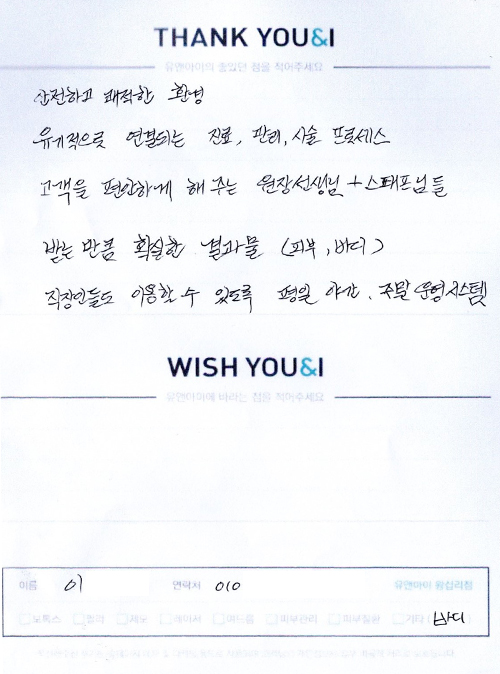 THANK YOU&I
유앤아이의 좋았던 점을 적어주세요
안전하고 쾌적한 환경
유기적으로 연결되는 진료, 관리, 시술 프로세스
고객을 편안하게 해 주는 원장선생님 + 스태프님들
받는 만큼 확실한 결과물 (피부, 바디)
직장인들도 이용할 수 있도록 평일 야간, 주말 운영시스템
WISH YOU&I
유앤아이에 바라는 점을 적어주세요
이름 이 연락처 010 유앤아이 왕십리점
보톡스 필러 제모 레이저 여드름 피부관리 피부질환 기타 ( 바디